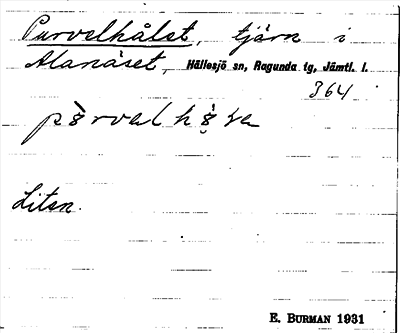 Purvelhålet, tjärn i
Alanäset, Hällesjö sn, Ragunda tg, Jämtl. l.
364
Liten.
E. BURMAN 1931